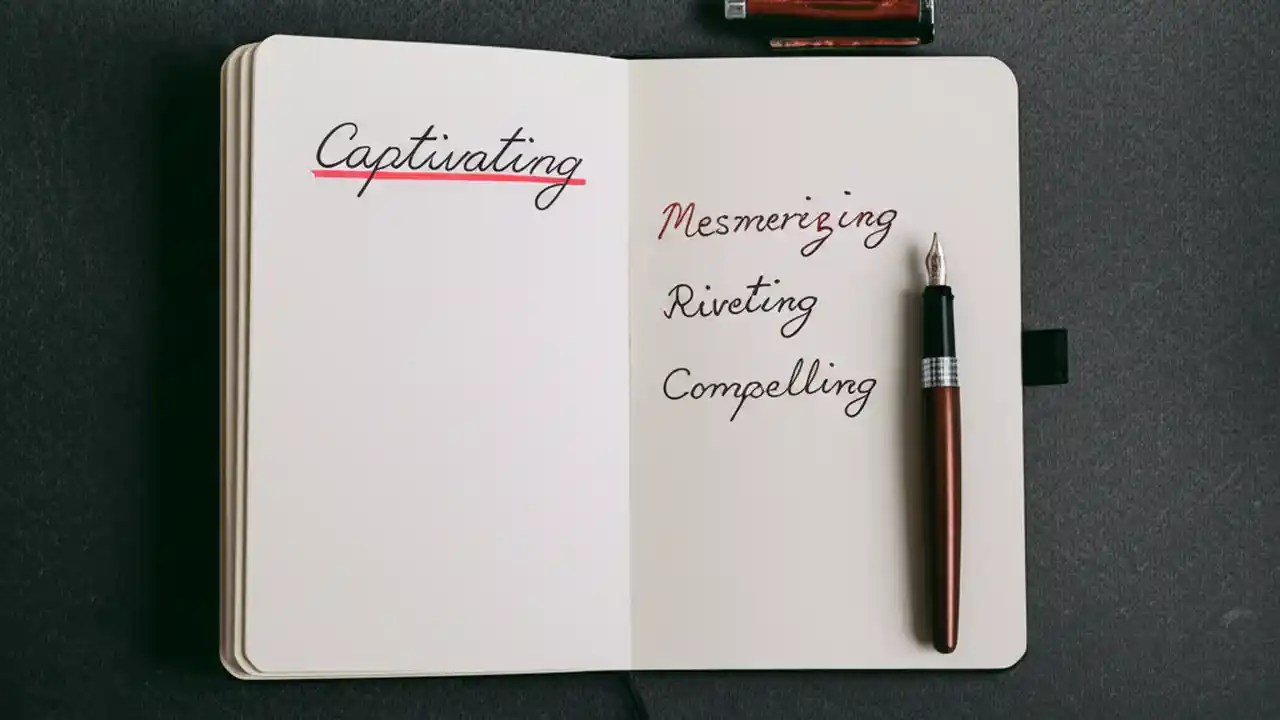 Captivating
Mesmerizing
Riveting
Compelling